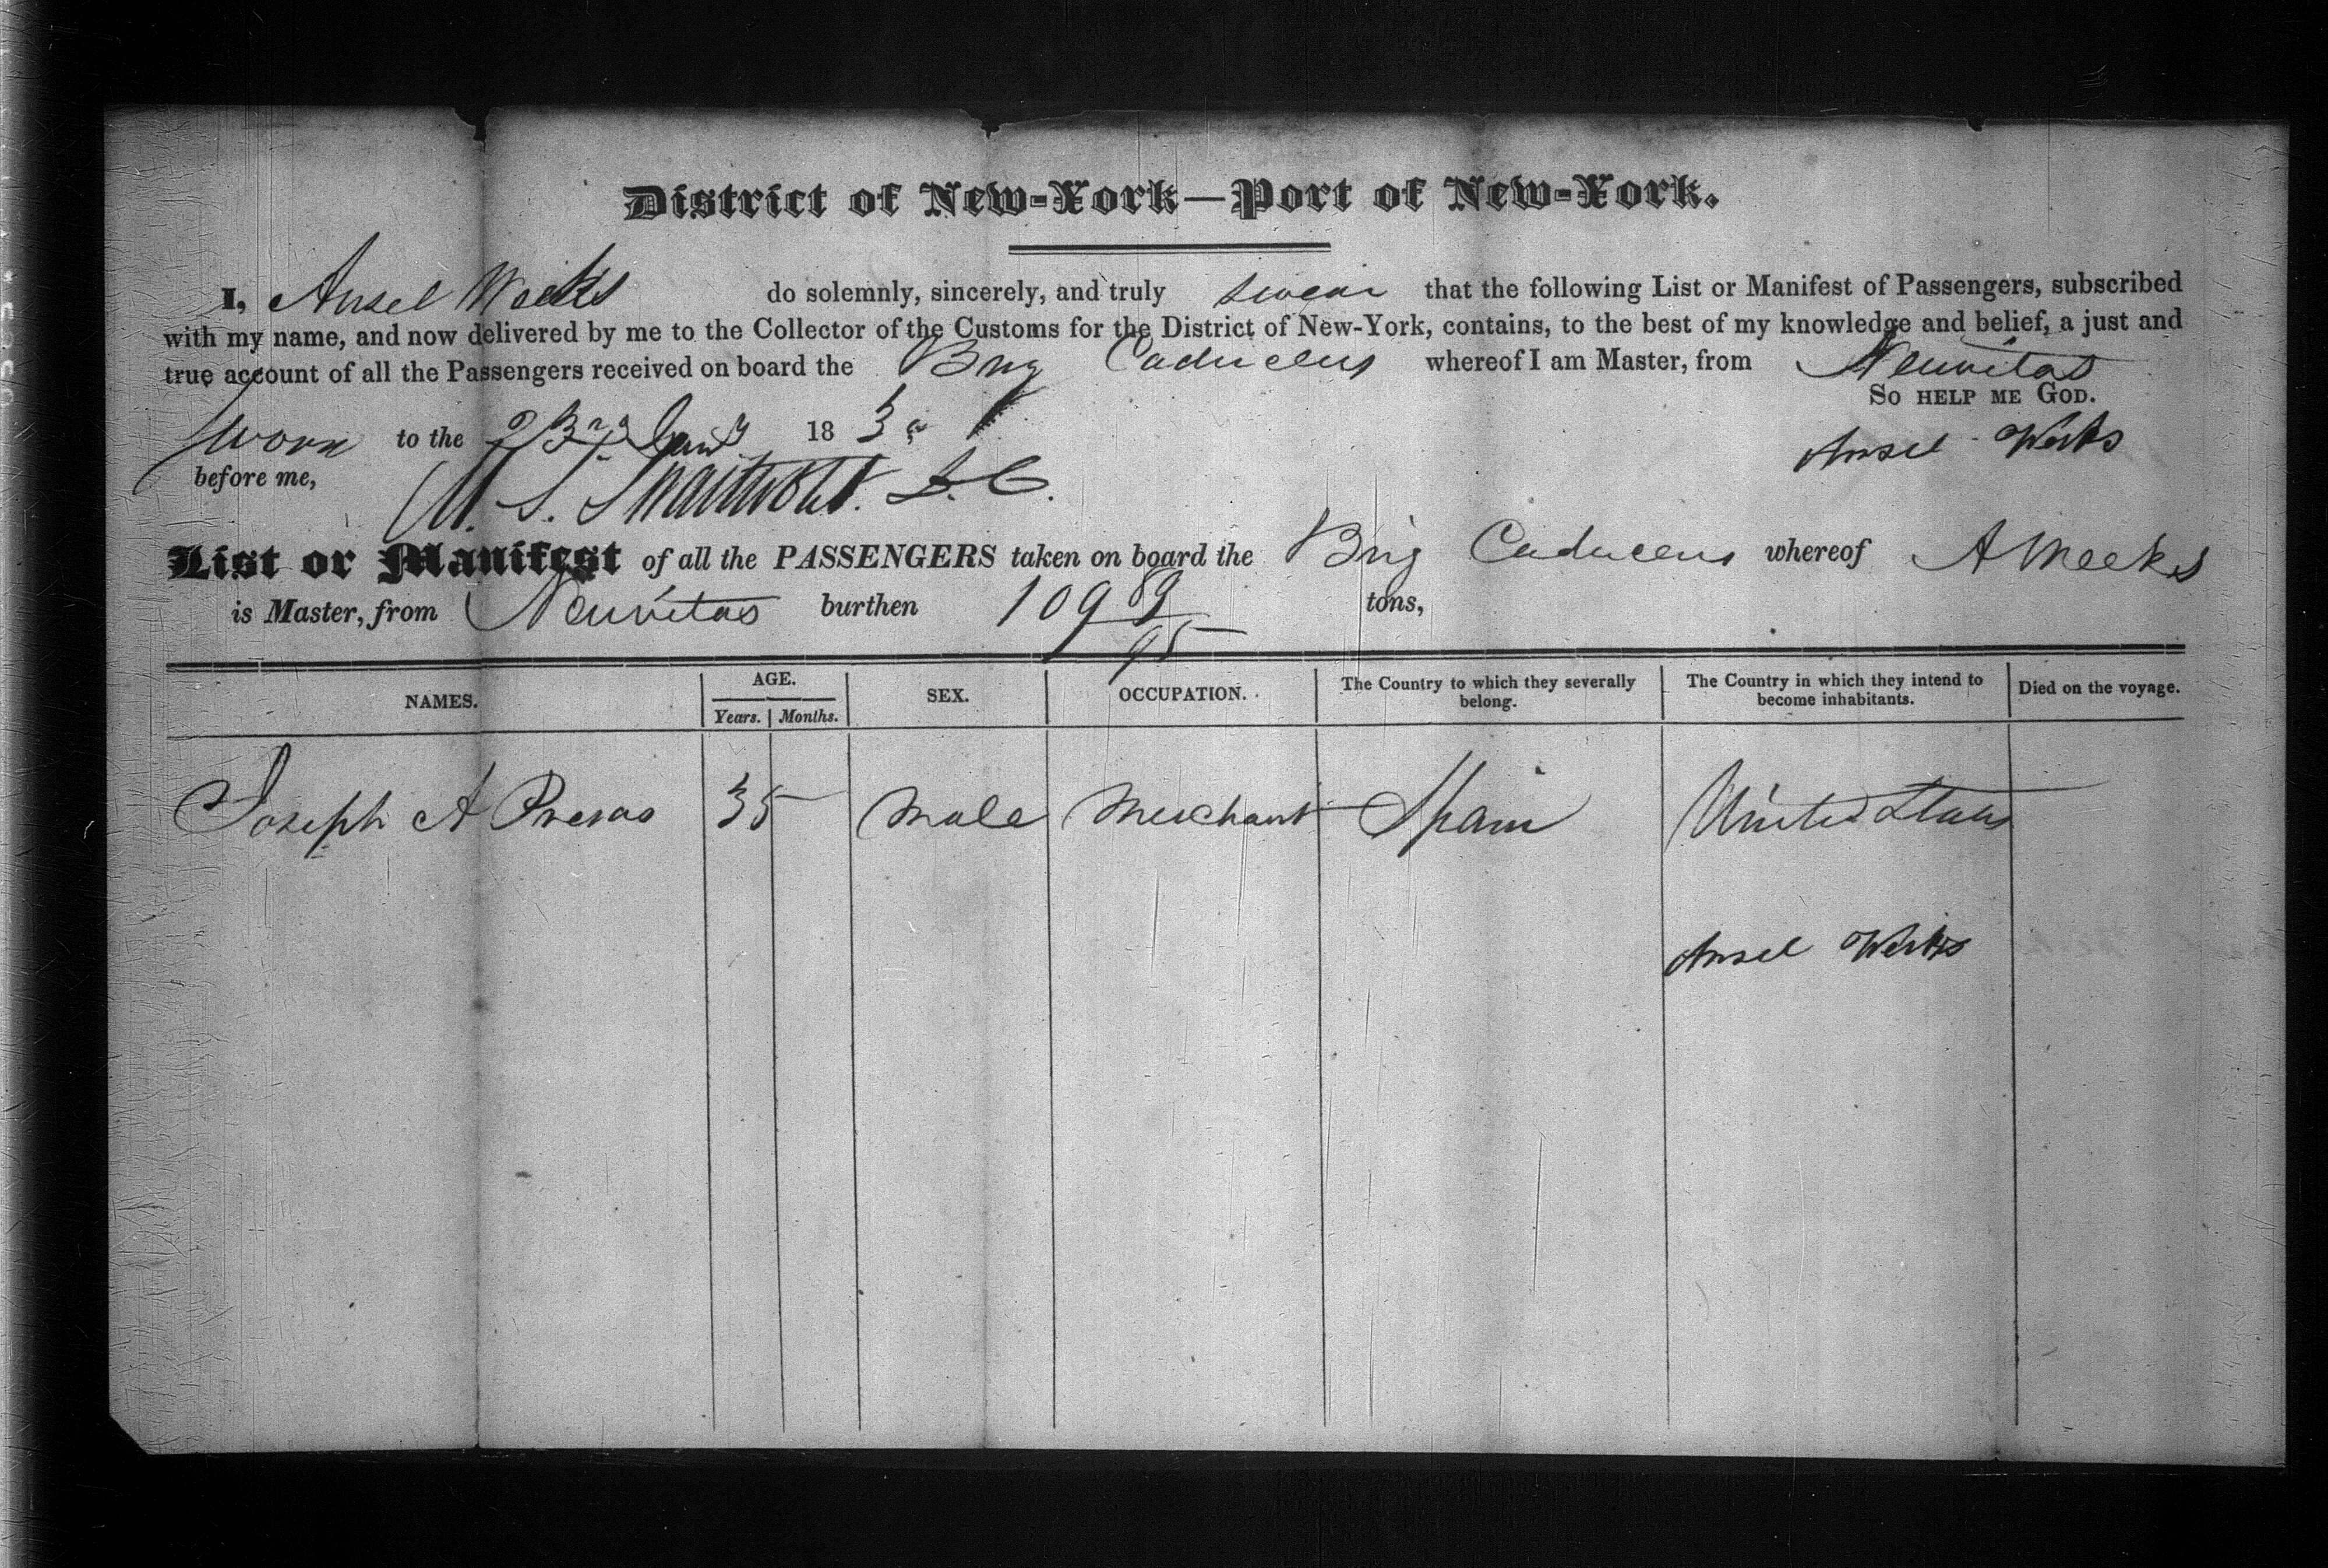 District of New-York—Port of New-York.
I, Ansel Weeks do solemnly, sincerely, and truly swear that the following List or Manifest of Passengers, subscribed
with my name, and now delivered by me to the Collector of the Customs for the District of New-York, contains, to the best of my knowledge and belief, a just and
true account of all the Passengers received on board the Brig Caduceus whereof I am Master, from Neuvitas
So HELP ME GOD.
Sworn to the 23rd Jany 183
Ansel Weeks
before me,
List or Manifest of all the PASSENGERS taken on board the Brig Caduceus whereof A Weeks
is Master, from Neuvitas burthen 109 89/95 tons,
NAMES. AGE. SEX. OCCUPATION. The Country to which they severally belong. The Country in which they intend to become inhabitants. Died on the voyage.
Years. Months.
Joseph A Presas 35 Male Merchant Spain United States
Ansel Weeks